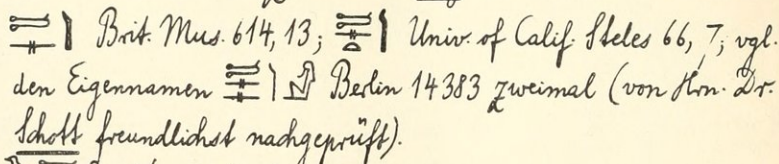 Brit. Mus. 614, 13; Univ. of Calif. Steles 66, 7; vgl.
den Eigennamen Berlin 14383 zweimal (von Hrn. Dr.
Schott freundlichst nachgeprüft).